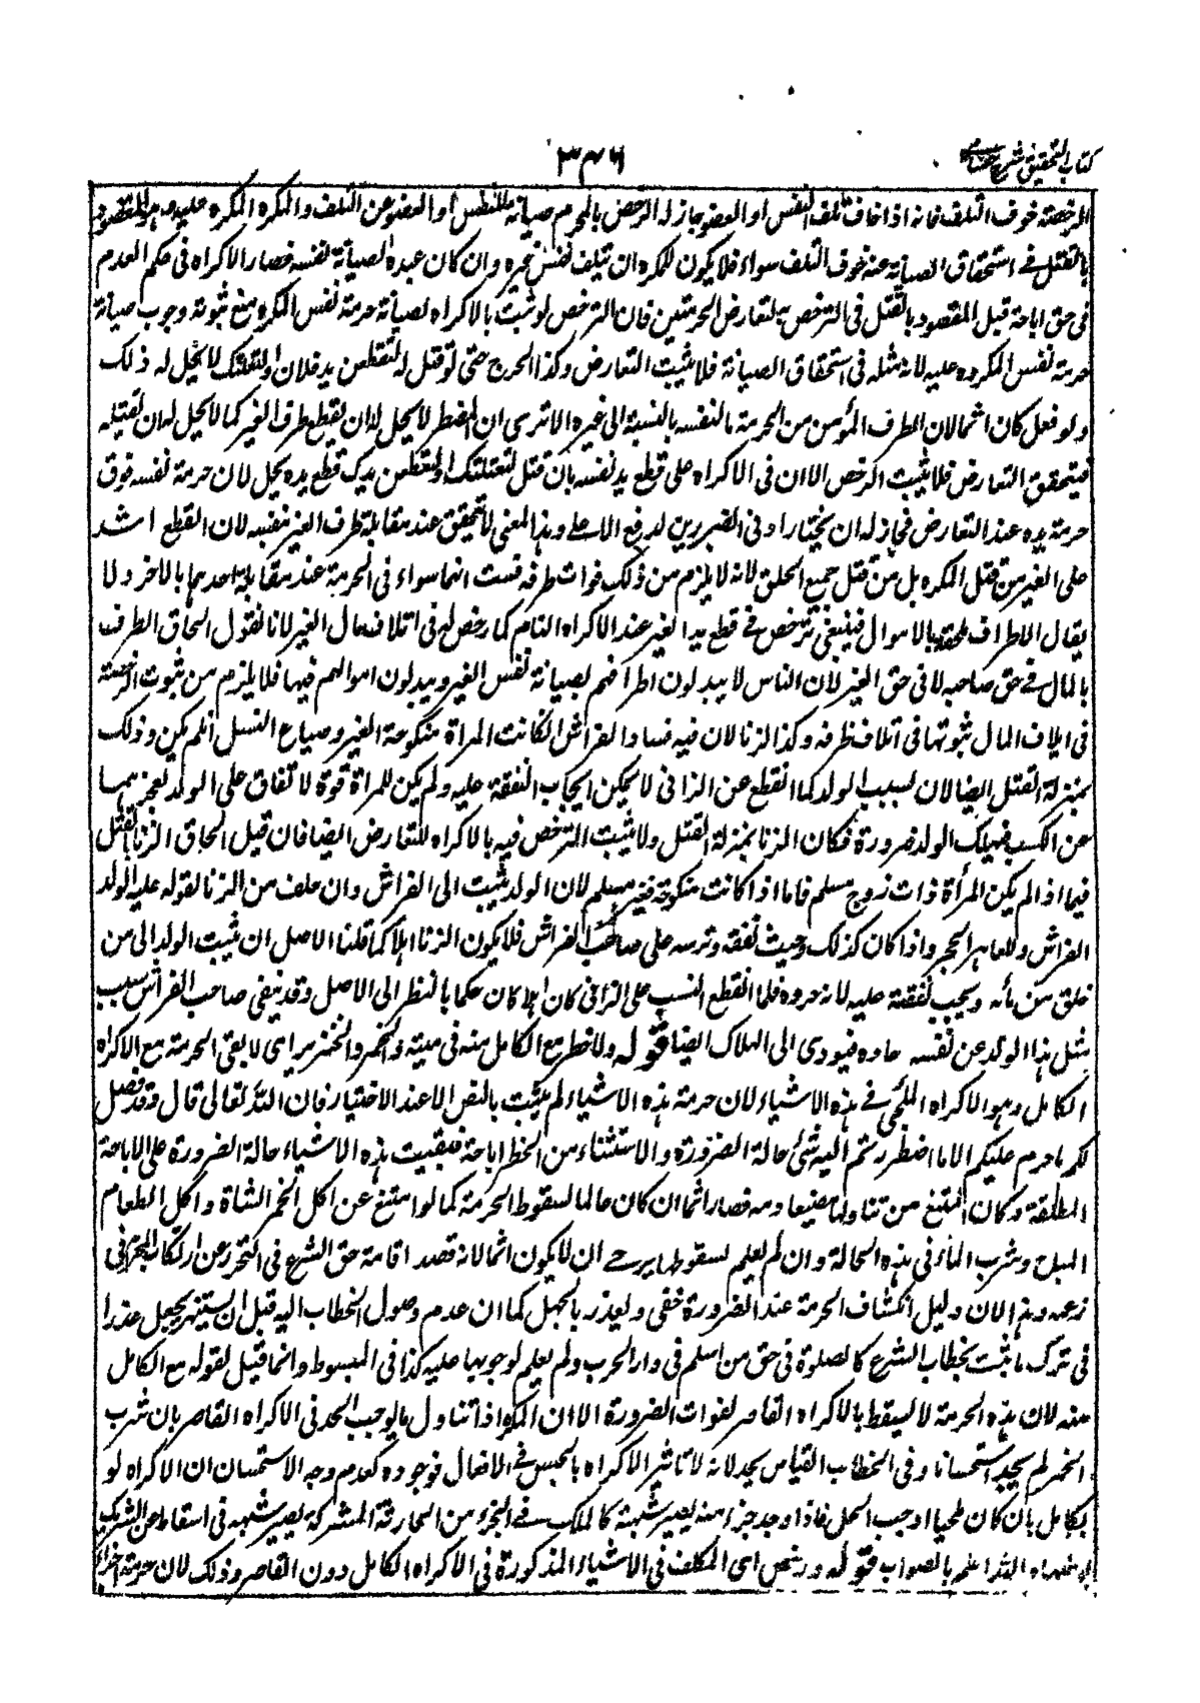 كتاب التحقيق شرح حسامى
٣٤٦
الرخصة خوف التلف فانه اذا خاف تلف النفس او العضو جاز له الترخص بالمحرم صيانة للنفس او العضو عن التلف والمكره المكره عليه وهو المقصود
بالقتل فى استحقاق الصيانة عند خوف التلف سواء فلا يكون للمكره ان يتلف نفس غيره وان كان عبده لصيانة نفسه فصار الاكراه فى حكم العدم
فى حق اباحة قبل المقصود بالقتل فى الترخص لتعارض الحرمتين فان الترخص لو ثبت بالاكراه لصيانة حرمة نفس المكره منع ثبوته وجوب صيانة
حرمة نفس المكره عليه لانه مثله فى استحقاق الصيانة فلا يثبت التعارض وكذا الجرح حتى لو قتل له لتقطعن يد فلان او لنقتلنك لا يحل له ذلك
ولو فعل كان اثما لان الطرف المؤمن من الحرمة ما لنفسه بالنسبة الى غيره الا ترى ان المضطر لا يحل له ان يقطع طرف الغير كما لا يحل له ان يقتله
فيتحقق التعارض فلا يثبت الرخص الا ان فى الاكراه على قطع يد نفسه بان قتل لنقتلنك او لتقطعن يدك قطع يده يحل لان حرمة نفسه فوق
حرمة يده عند التعارض فجاز له ان يختار ادنى الضررين لدفع الاعلى وهذا المعنى لا يتحقق عند مقابلة طرف الغير بنفسه لان القطع اشد
على الغير من قتل المكره بل من قتل جميع الخلق لانه لا يلزم من ذلك فوات طرفه فثبت انهما سواء فى الحرمة عند مقابلة احدهما بالاخر ولا
يقال الاطراف ملحقة بالاموال فينبغى ترخص فى قطع يد الغير عند الاكراه التام كما رخص له فى اتلاف مال الغير لانا نقول الحاق الطرف
بالمال فى حق صاحبه لا فى حق الغير لان الناس لا يبدلون اطرافهم لصيانة نفس الغير ويبدلون اموالهم فيها فلا يلزم من ثبوت الرخصة
فى اتلاف المال ثبوتها فى اتلاف طرفه وكذا الزنا لان فيه فساد الفراش ان كانت المراة منكوحة الغير وضياع النسل ان لم يكن وذلك
بمنزلة القتل ايضا لان لسبب الولد كما انقطع عن الزانى لا يمكن ايجاب النفقة عليه ولم يكن للمراة قوة لانفاق على الولد لعجزهما
عن الكسب فيهلك الولد ضرورة فكان الزنا بمنزلة القتل ولا يثبت الترخص فيه بالاكراه للتعارض ايضا فان قيل الحاق الزنا بالقتل
فيما اذا لم يكن المرأة ذات زوج مسلم فاما اذا كانت منكوحة فغير مسلم لان الولد يثبت الى الفراش وان خلف من الزنا لقوله عليه الولد
الفراش وللعاهر الحجر واذا كان كذلك وجبت نفقته وترسه على صاحب الفراش فلا يكون الزنا اهلاكا قلنا الاصل ان يثبت الولد الى من
خلق من مائه ويجب نفقته عليه لانه جروه فلما انقطع النسب على الزانى كان اهلاكا حكما بالنظر الى الاصل وقد ينفى صاحب الفراش بسبب
مثل هذا الولد عن نفسه عاده فيودى الى الهلاك ايضا قوله ولا خطر مع الكامل منه فى ميتة والخمر والخنزير اى لا يبقى الحرمة مع الاكراه
الكامل وهو الاكراه الملجى فى هذه الاشياء لان حرمة هذه الاشياء لم يثبت بالنص الا عند الاختيار فان الله تعالى قال وقد فصل
لكم ما حرم عليكم الا ما اضطررتم اليه شئ حالة الضرورة والاستثناء من الخطر اباحة فبقيت هذه الاشياء حالة الضرورة على الاباحة
المطلقة وكان الممتنع من تناولها مضيعا دمه فصار اثما ان كان عالما لسقوط الحرمة كما لو امتنع عن اكل الخمر الشاة واكل الطعام
المباح وشرب الماء فى هذه الحالة وان لم يعلم لسقوطها يرجى ان لا يكون اثما لانه قصد اقامة حق الشرع فى التحرز عن ارتكاب المحرم فى
زعمه وهذا لان دليل انكشاف الحرمة عند الضرورة خفى ويعذر بالجهل كما ان عدم وصول الخطاب اليه قبل ان يشتهر يجعل عذرا
فى ترك ما ثبت بخطاب الشرع كالصلوة فى حق من اسلم فى دار الحرب ولم يعلم لوجوبها عليه كذا فى المبسوط وانما قيل لقوله مع الكامل
منه لان هذه الحرمة لا يسقط بالاكراه القاصر لفوات الضرورة الا ان المكره اذا تناول ما يوجب الحد فى الاكراه القاصر بان شرب
الخمر لم يحد استحسانا وفى الخطاب القياس يحد لانه لا تاثير الاكراه بالحبس فى الافعال فوجوده كعدم وجه الاستحسان ان الاكراه لو
يكامل بان كان ملجيا اوجب الحل فاذا وجد جزء منه يصير شبهة كالملك فى الجزء من الجارية المشتركة يصير شبهه فى اسقاط عن الشريك
والله اعلم بالصواب قوله ورخص اى المكلف فى الاشياء المذكورة فى الاكراه الكامل دون القاصر وذلك لان حرمة